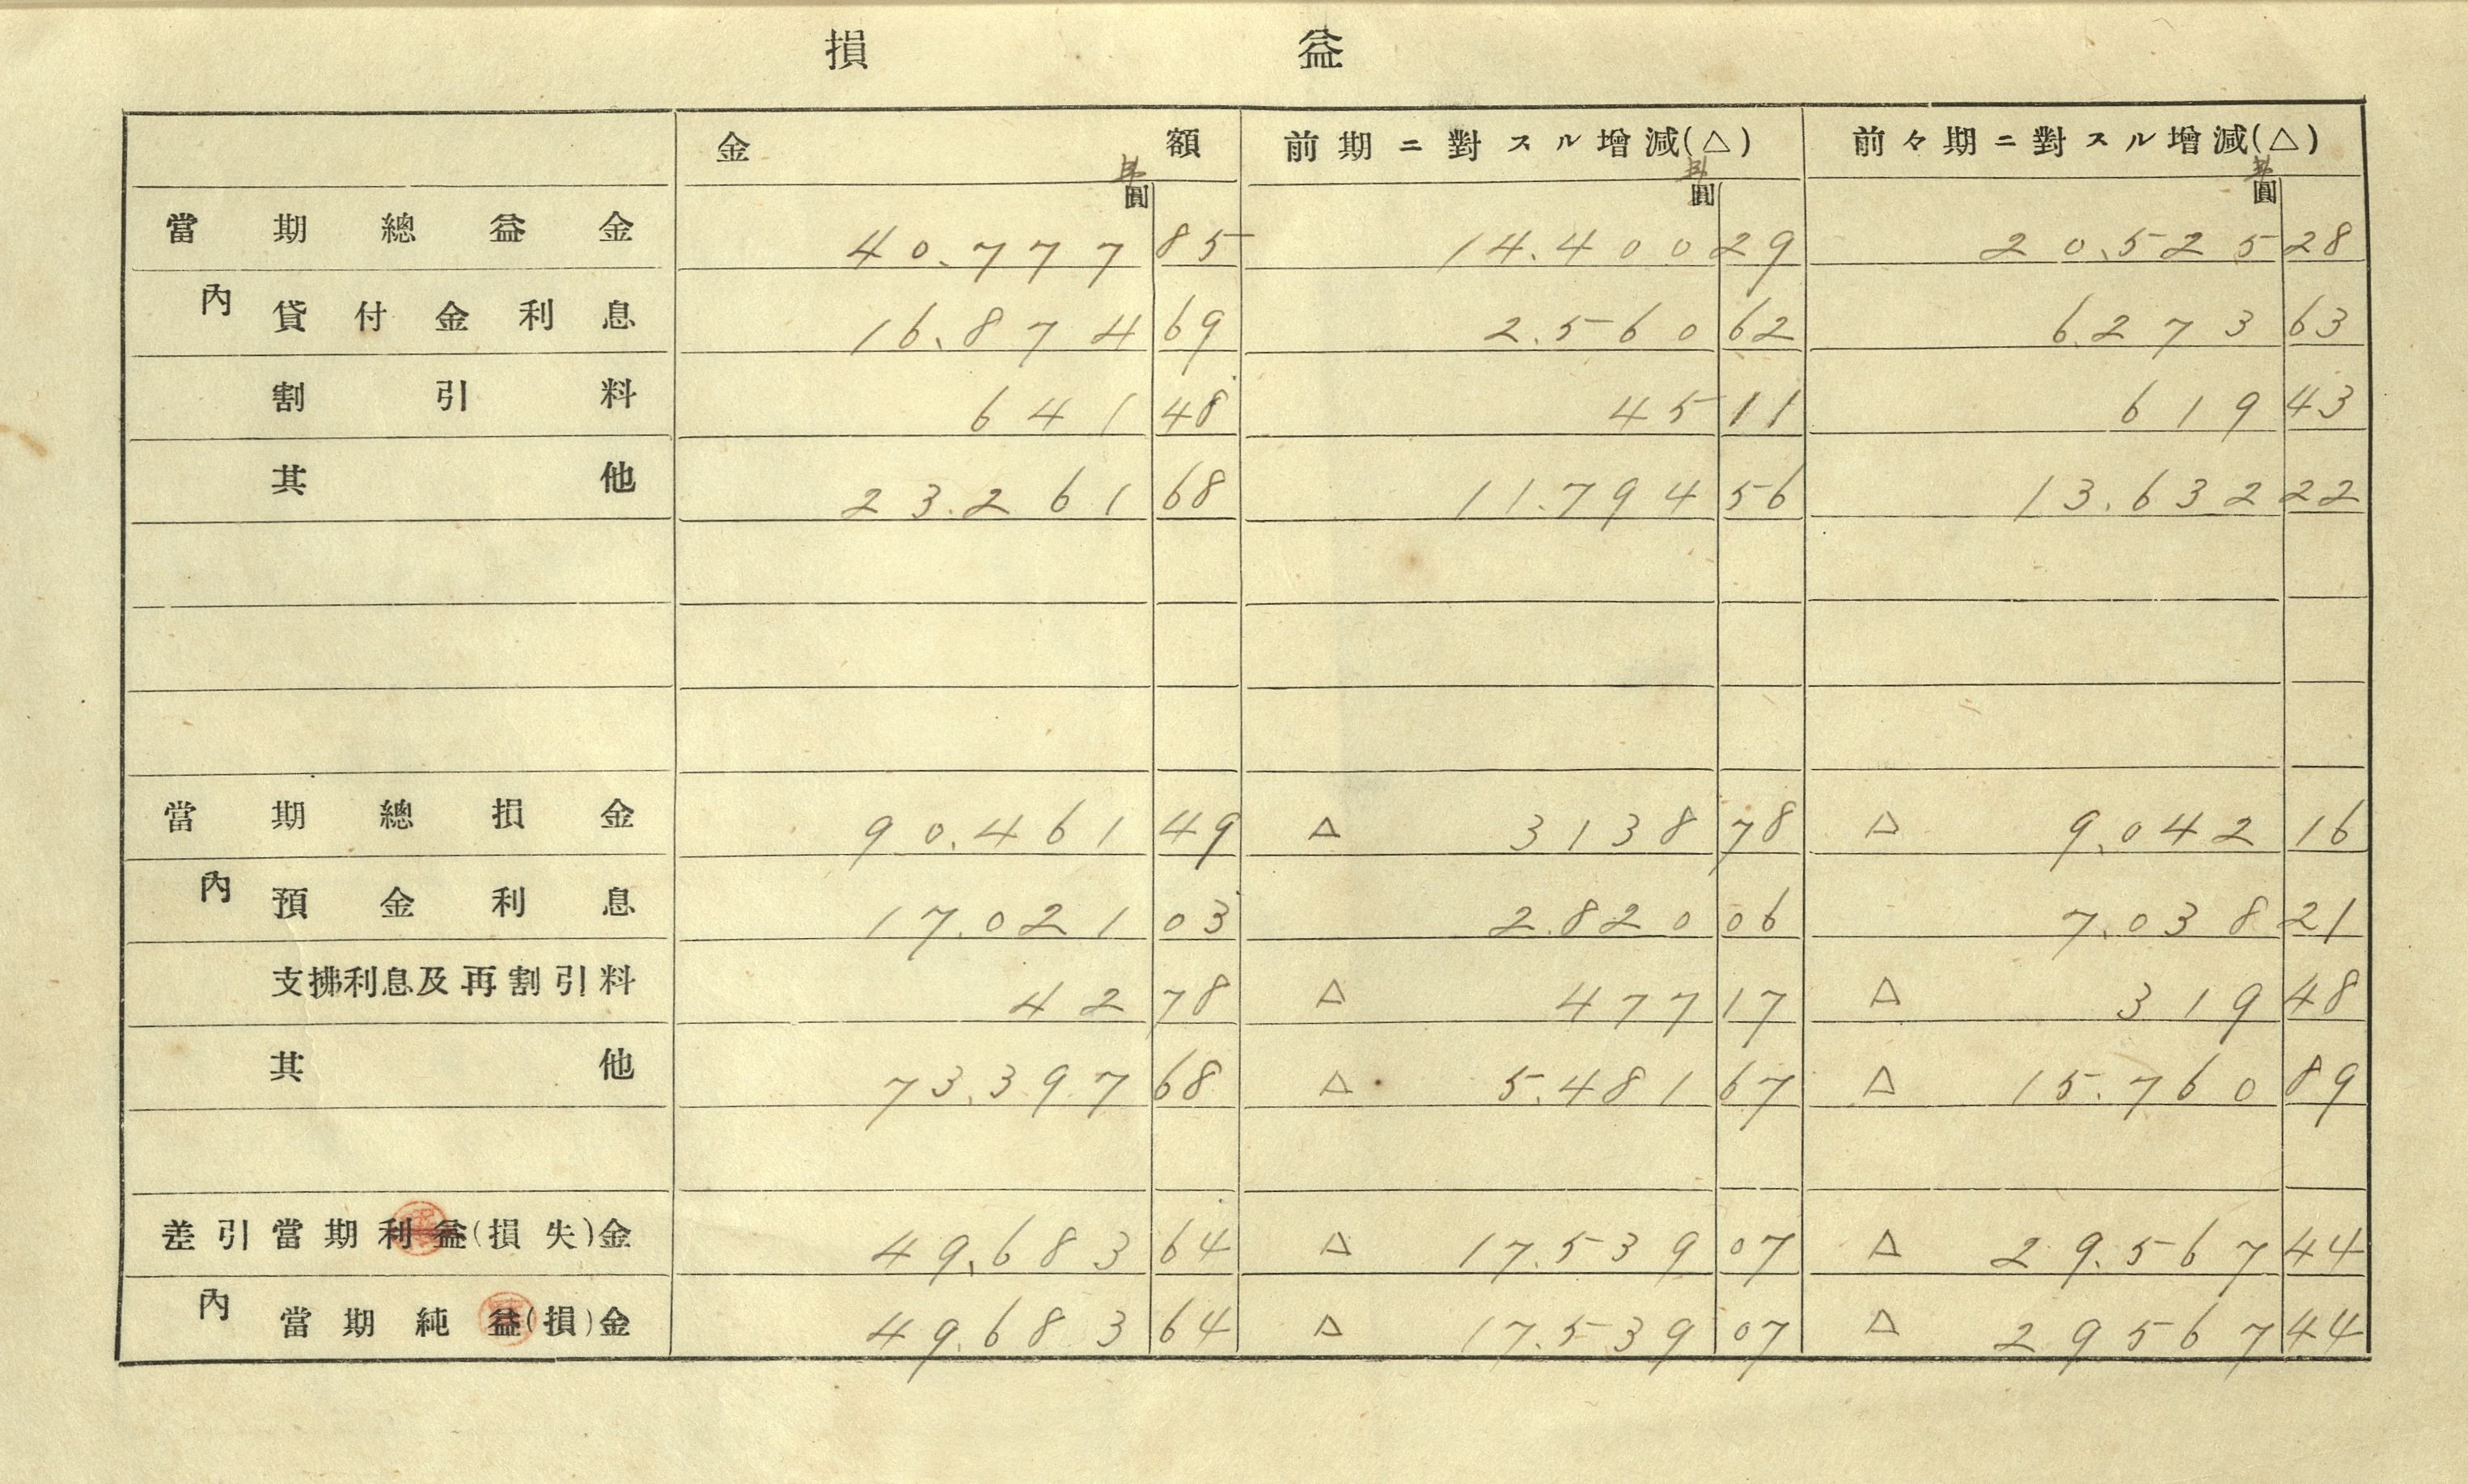 損益
金額 前期ニ對スル增減(△) 前々期ニ對スル增減(△)
圓 圓 圓
當期總益金 40.777 85 14.400 29 20.525 28
內 貸付金利息 16.874 69 2.560 62 6.273 63
割引料 641 48 45 11 619 43
其他 23.261 68 11.794 56 13.632 22
當期總損金 90.461 49 △ 3138 78 △ 9.042 16
內 預金利息 17.021 03 2.820 06 7.038 21
支拂利息及再割引料 42 78 △ 477 17 △ 319 48
其他 73.397 68 △ 5.481 67 △ 15.760 89
差引當期利益(損失)金 49.683 64 △ 17.539 07 △ 29.567 44
內 當期純益(損)金 49.683 64 △ 17.539 07 △ 29567 44